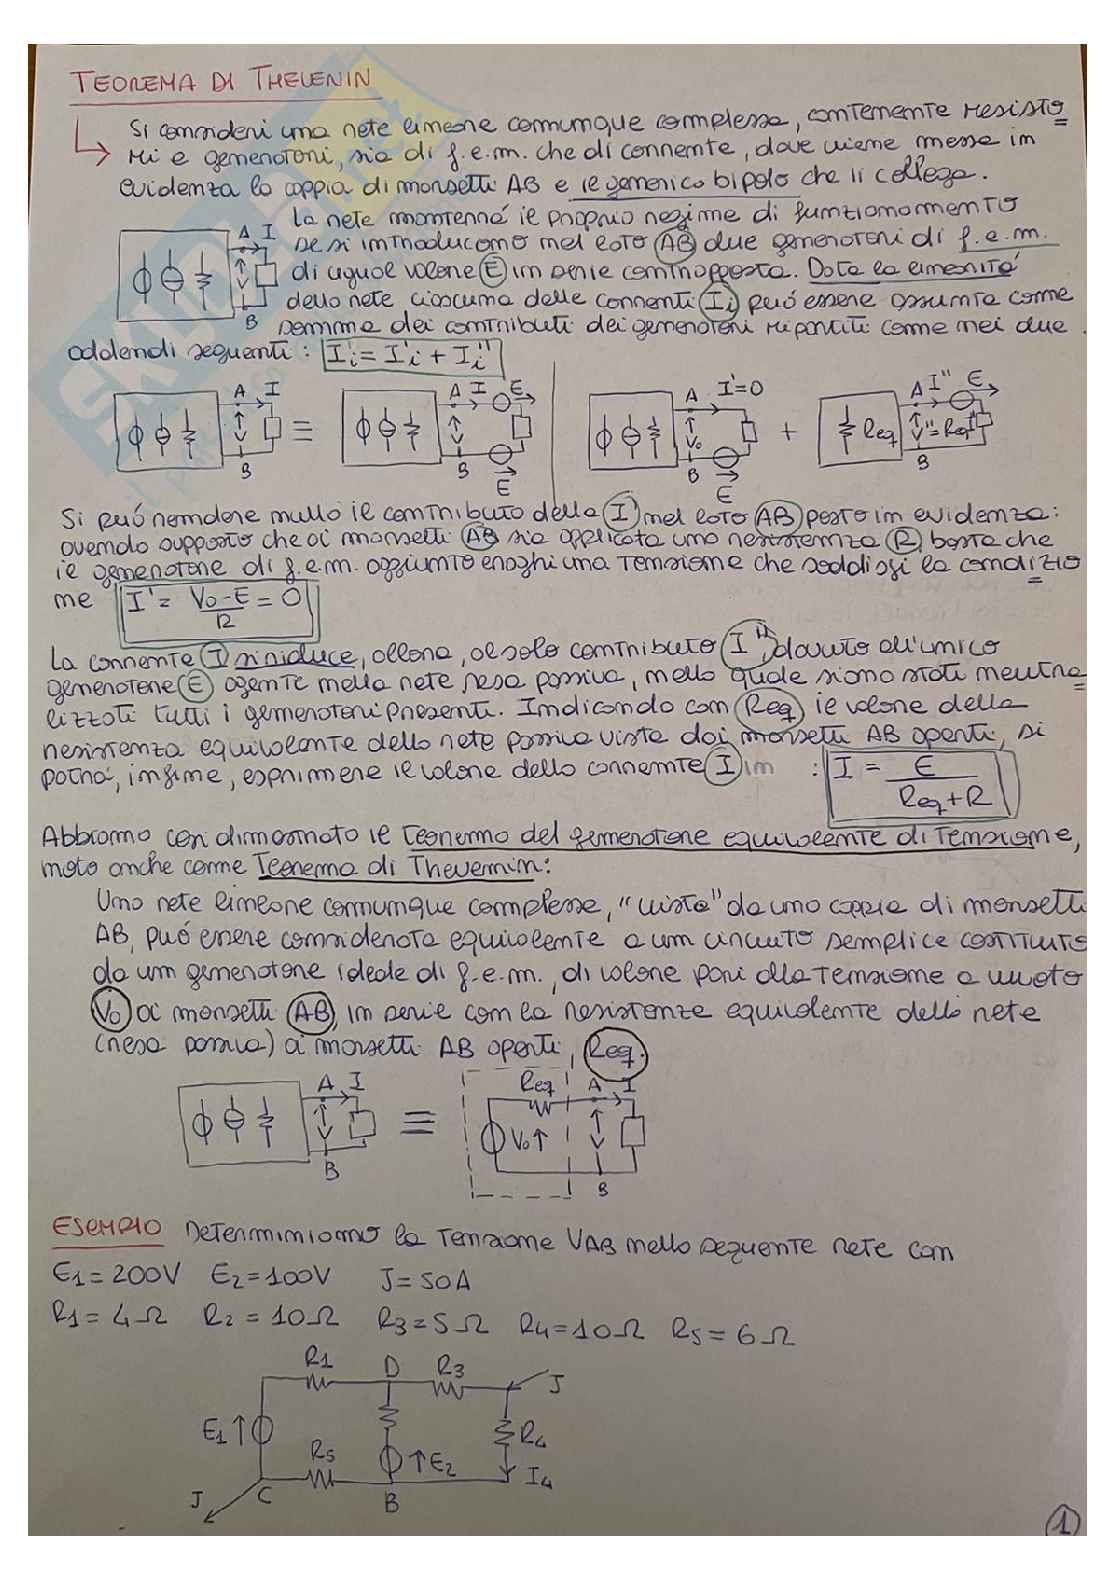 TEOREMA DI THEVENIN
Si consideri una rete lineare comunque complessa, contenente resisto
ri e generatori, sia di f.e.m. che di corrente, dove viene messa in
evidenza la coppia di morsetti AB e il generico bipolo che li collega.
La rete manterrà il proprio regime di funzionamento
A I
se si introducono nel lato AB due generatori di f.e.m.
di ugual valore E in serie contrapposta. Data la linearità
della rete ciascuna delle correnti Ii può essere assunta come
B
somma dei contributi dei generatori ripartiti come nei due
addendi seguenti: Ii = I'i + Ii''
A I ≡ A I E A I'=0 + A I'' E
Req V''=Req I''
V0
B B E B E B
Si può rendere nullo il contributo della I nel lato AB posto in evidenza:
avendo supposto che ai morsetti AB sia applicata una resistenza R, basta che
il generatore di f.e.m. aggiunto eroghi una tensione che soddisfi la condizio
ne I' = V0-E / R = 0
La corrente I si riduce, allora, al solo contributo I'', dovuto all'unico
generatore E agente nella rete resa passiva, nella quale siano stati neutra
lizzati tutti i generatori presenti. Indicando con Req il valore della
resistenza equivalente della rete passiva vista dai morsetti AB aperti, si
potrà, infine, esprimere il valore della corrente I in : I = E / Req+R
Abbiamo così dimostrato il teorema del generatore equivalente di tensione,
noto anche come Teorema di Thevenin:
Una rete lineare comunque complessa, "vista" da una coppia di morsetti
AB, può essere considerata equivalente a un circuito semplice costituito
da un generatore ideale di f.e.m., di valore pari alla tensione a vuoto
V0 ai morsetti AB, in serie con la resistenza equivalente della rete
(resa passiva) ai morsetti AB aperti, Req.
A I ≡ Req A I
V0
B B
ESEMPIO Determiniamo la tensione VAB nella seguente rete con
E1=200V E2=100V J=50A
R1=4Ω R2=10Ω R3=5Ω R4=10Ω R5=6Ω
R1 D R3
J
E1 R5 E2 R4
I4
J C B
1